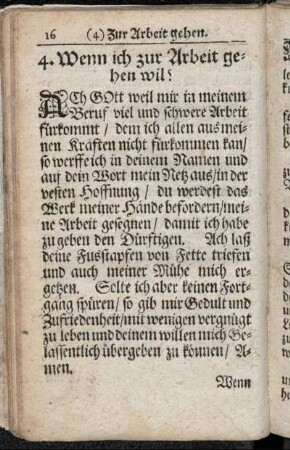 16 (4) Zur Arbeit gehen.
4. Wenn ich zur Arbeit ge-
hen wil?
ACh GOtt weil mir in meinem
Beruf viel und schwere Arbeit
fürkommt / dem ich allen aus mei-
nen Kräften nicht fürkommen kan/
so werffe ich in deinem Namen und
auf dein Wort mein Netz aus/ in der
vesten Hoffnung / du werdest das
Werk meiner Hände befördern/mei-
ne Arbeit gesegnen / damit ich habe
zu geben den Dürftigen. Ach laß
deine Fusstapfen von Fette triefen
und auch meiner Mühe mich er-
getzen. Solte ich aber keinen Fort-
gang spüren/ so gib mir Gedult und
Zufriedenheit/mit wenigen vergnügt
zu leben und deinem willen mich Ge-
lassentlich übergeben zu können/ A-
men.
Wenn